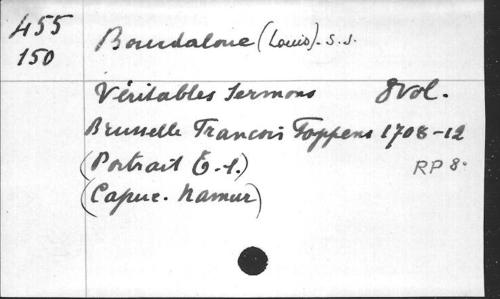 455
150
Bourdaloue (Louis). S.J.
Véritables Sermons 8 Vol.
Bruxelle Francois Foppens 1708-12
(Portrait T.-1.) RP 8.
(Capuc. Namur)